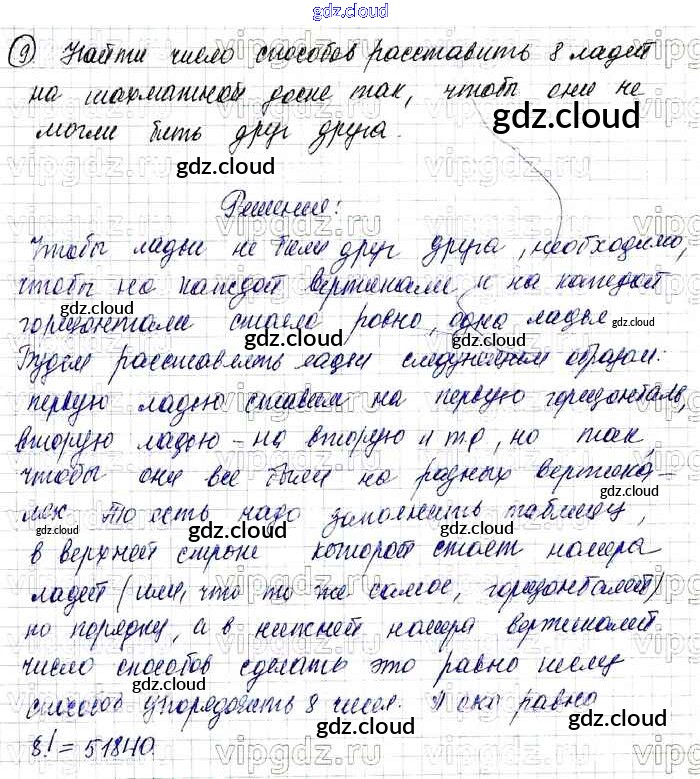 gdz.cloud
⑨ Найти число способов расставить 8 ладей
на шахматной доске так, чтобы они не
могли бить друг друга.
gdz.cloud
Решение:
Чтобы ладьи не били друг друга, необходимо,
чтобы на каждой вертикали и на каждой
горизонтали стояло ровно одна ладья.
Будем расставлять ладьи следующим образом:
первую ладью ставим на первую горизонталь,
вторую ладью – на вторую и т д, но так
чтобы они все были на разных вертика-
лях То есть надо заполнить таблицу,
в верхней строке которой стоят номера
ладей (или, что то же самое, горизонталей)
по порядку, а в нижней номера вертикалей.
Число способов сделать это равно числу
способов упорядочить 8 чисел. А оно равно
8! = 51840.